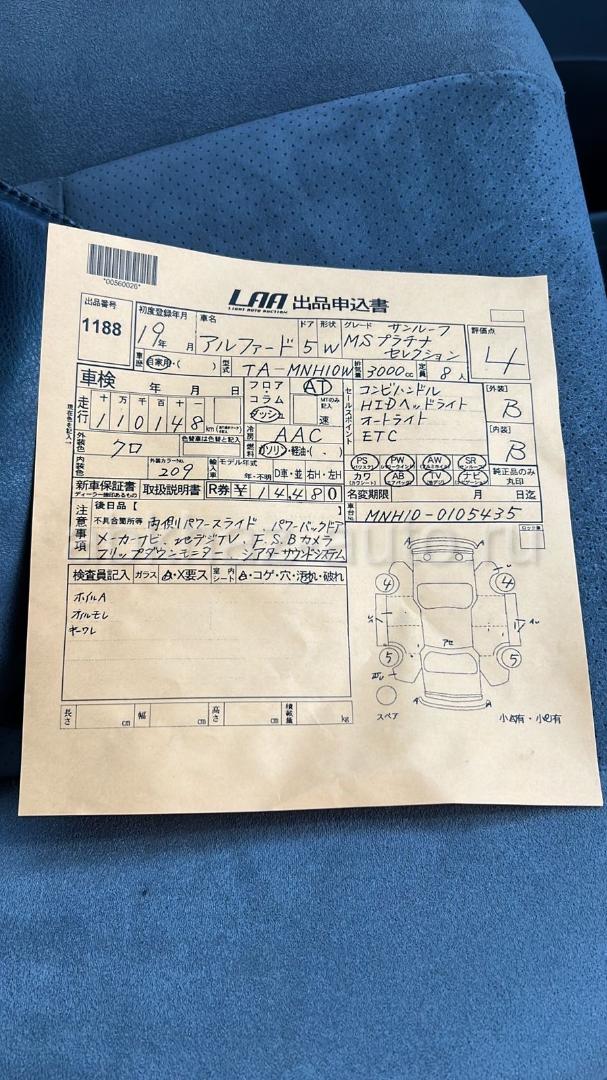 *00560026*
LAA 出品申込書
LIGHT AUTO AUCTION
出品番号
1188
初度登録年月
19年 月
車名
アルファード
ドア
5
形状
W
グレード
サンルーフ
MSプラチナ
セレクション
評価点
4
車歴
自家用・( )
型式
TA-MNH10W
排気量
3000cc
定員
8人
車検 年 月 日
フロア
コラム
ダッシュ
AT
MTのみ記入
速
セールスポイント
コンビハンドル
HIDヘッドライト
オートライト
ETC
【外装】
B
【内装】
B
純正品のみ
丸印
現在色を記入
走行
十万千百十一
110148
km
冷房
AAC
外装色
クロ
色替車は色替と記入
燃料
ガソリン・軽油・( )
PS
PW
AW
SR
カワ
AB
TV
ナビ
内装色
外装カラーNo.
209
輸入車
モデル年式
年・不明
D車・並 右H・左H
新車保証書
ディーラー捺印あるもの
取扱説明書
R券 ¥ 14480
名変期限 月 日迄
注意事項
後日品【 】
不具合箇所等
両側パワースライド、パワーバックドア
メーカーナビ、地デジTV、F.S.Bカメラ
フリップダウンモニター シアターサウンドシステム
車台No.
MNH10-0105435
検査員記入
ガラス
A・X要ス
室内シート
A・コゲ・穴・汚れ・破れ
ホイルA
オイルモレ
キーワレ
A
A
4
4
アセ
5
5
A
A
スペア
長さ cm
幅 cm
高さ cm
積載量 kg
小凹有・小キ有